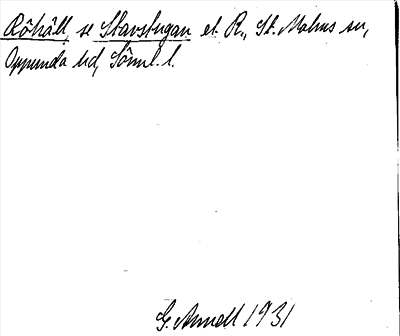 Röhäll, se Stavstugan el. R., St. Malms sn,
Oppunda hd, Sörml. l.
G. Arnell 1931